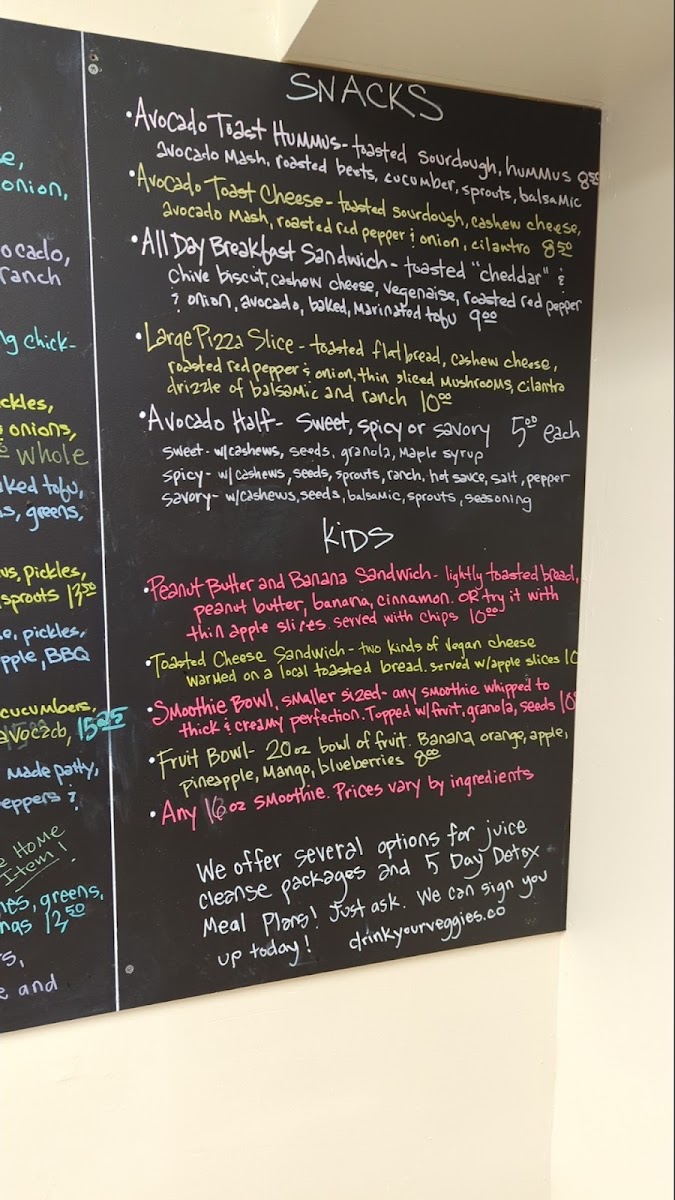 e,
onion,
ocado,
ranch
ng chick-
ckles,
onions,
whole
ked tofu,
s, greens,
us, pickles,
sprouts 13.50
e, pickles,
pple, BBQ
cucumbers,
avocado, 15.25
Made patty,
eppers ?
e Home
Item!
nes, greens,
ngs 12.50
s,
e and
SNACKS
• Avocado Toast Hummus- toasted sourdough, hummus 8.50
avocado mash, roasted beets, cucumber, sprouts, balsamic
• Avocado Toast Cheese- toasted sourdough, cashew cheese,
avocado mash, roasted red pepper & onion, cilantro 8.50
• All Day Breakfast Sandwich- toasted "cheddar" &
chive biscuit, cashew cheese, vegenaise, roasted red pepper
? onion, avocado, baked, marinated tofu 9.00
• Large Pizza Slice - toasted flatbread, cashew cheese,
roasted red pepper & onion, thin sliced mushrooms, cilantro
drizzle of balsamic and ranch 10.00
• Avocado Half- Sweet, spicy or savory 5.00 each
sweet- w/cashews, seeds, granola, maple syrup
spicy- w/cashews, seeds, sprouts, ranch, hot sauce, salt, pepper
savory- w/cashews, seeds, balsamic, sprouts, seasoning
KIDS
• Peanut Butter and Banana Sandwich- lightly toasted bread,
peanut butter, banana, cinnamon. OR try it with
thin apple slices. served with chips 10.00
• Toasted Cheese Sandwich- two kinds of vegan cheese
warmed on a local toasted bread. served w/apple slices 10
• Smoothie Bowl, smaller sized- any smoothie whipped to
thick & creamy perfection. Topped w/fruit, granola, seeds 10
• Fruit Bowl- 20 oz bowl of fruit. Banana, orange, apple,
pineapple, mango, blueberries 8.00
• Any 16 oz smoothie. Prices vary by ingredients
We offer several options for juice
cleanse packages and 5 Day Detox
Meal Plans! Just ask. We can sign you
up today! drinkyourveggies.co